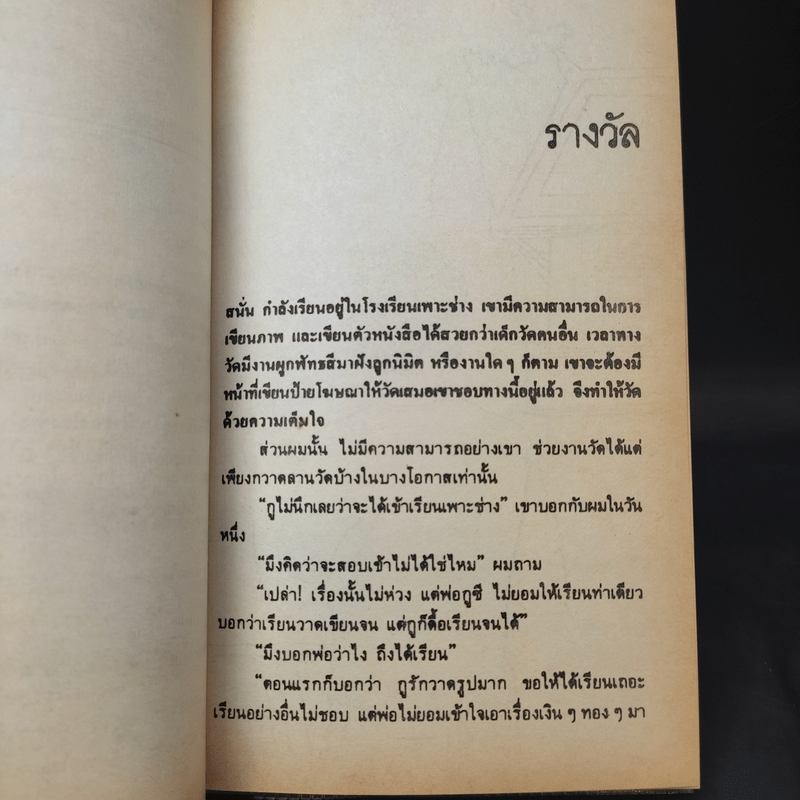 รางวัล
สนั่น กำลังเรียนอยู่ในโรงเรียนเพาะช่าง เขามีความสามารถในการ
เขียนภาพ และเขียนตัวหนังสือได้สวยกว่าเด็กวัดคนอื่น เวลาทาง
วัดมีงานผูกพัทธสีมาฝังลูกนิมิต หรืองานใด ๆ ก็ตาม เขาจะต้องมี
หน้าที่เขียนป้ายโฆษณาให้วัดเสมอเขาชอบทางนี้อยู่แล้ว จึงทำให้วัด
ด้วยความเต็มใจ
ส่วนผมนั้น ไม่มีความสามารถอย่างเขา ช่วยงานวัดได้แต่
เพียงกวาดลานวัดบ้างในบางโอกาสเท่านั้น
“กูไม่นึกเลยว่าจะได้เข้าเรียนเพาะช่าง” เขาบอกกับผมในวัน
หนึ่ง
“มึงคิดว่าจะสอบเข้าไม่ได้ใช่ไหม” ผมถาม
“เปล่า! เรื่องนั้นไม่ห่วง แต่พ่อกูซี ไม่ยอมให้เรียนท่าเดียว
บอกว่าเรียนวาดเขียนจน แต่กูก็ดื้อเรียนจนได้”
“มึงบอกพ่อว่าไง ถึงได้เรียน”
“ตอนแรกก็บอกว่า กูรักวาดรูปมาก ขอให้ได้เรียนเถอะ
เรียนอย่างอื่นไม่ชอบ แต่พ่อไม่ยอมเข้าใจเอาเรื่องเงิน ๆ ทอง ๆ มา